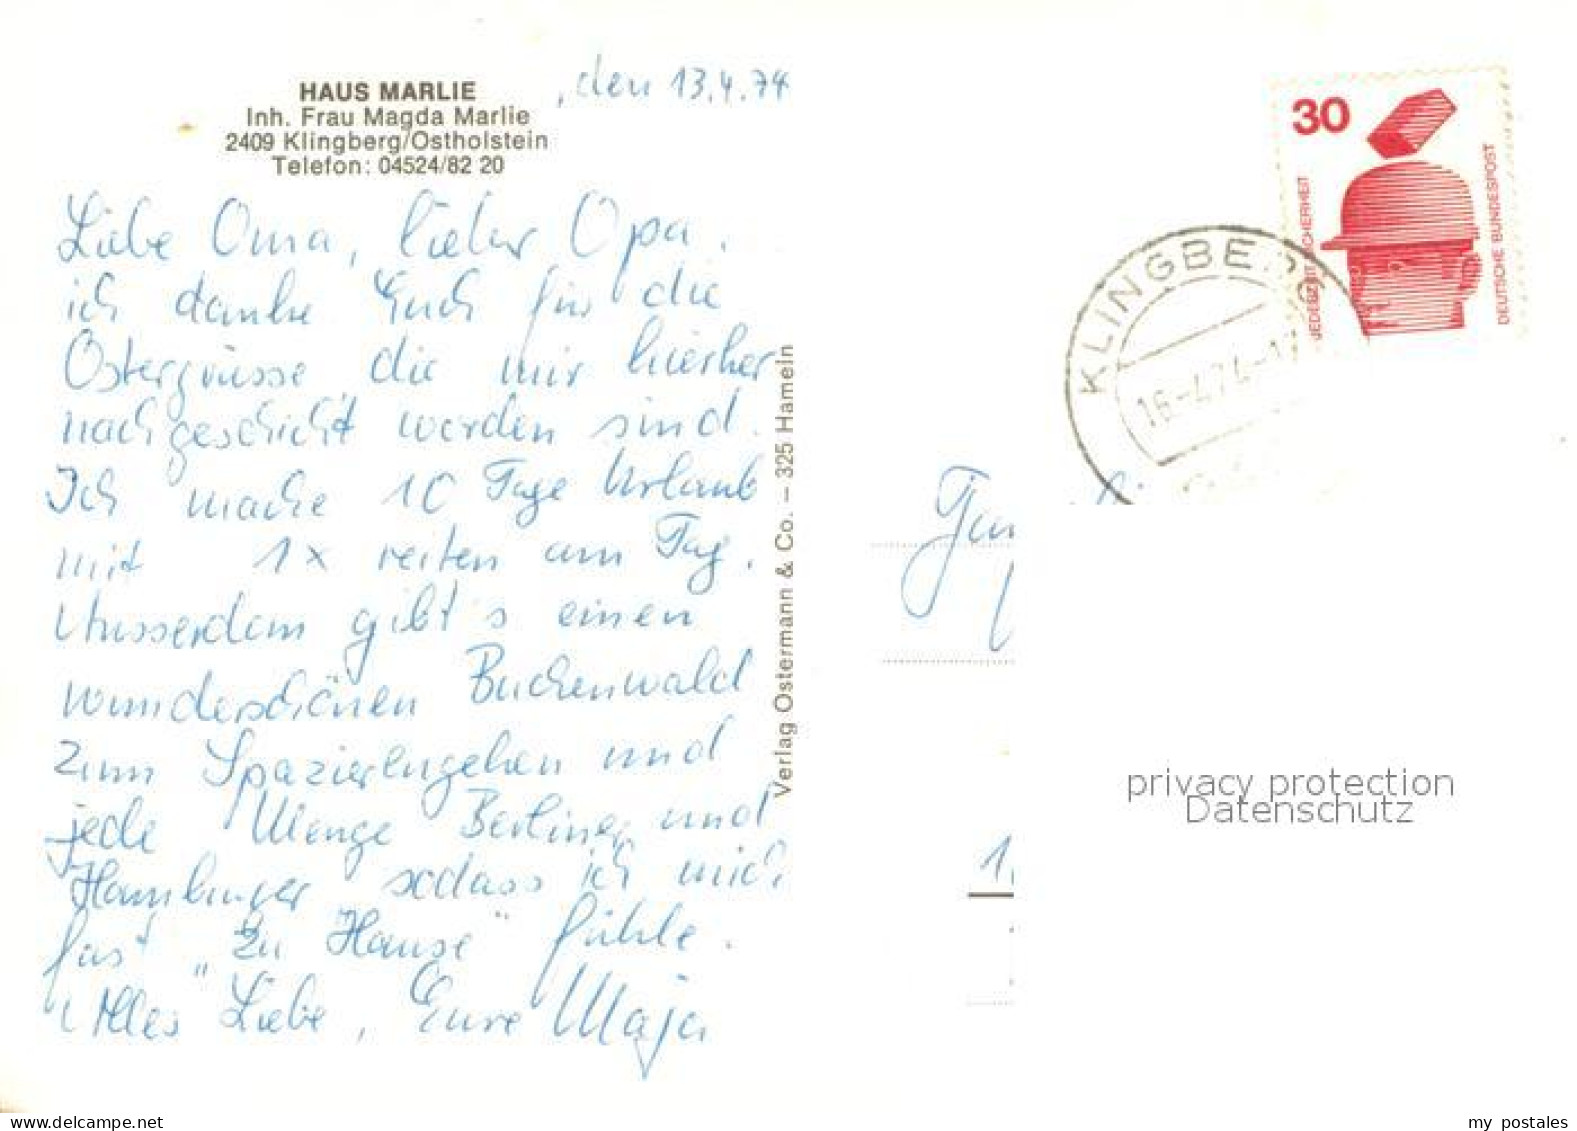 HAUS MARLIE
Inh. Frau Magda Marlie
2409 Klingberg/Ostholstein
Telefon: 04524/82 20
, den 13.4.74
Liebe Oma, lieber Opa.
ich danke Euch für die
Ostergrüsse, die mir hierher
nachgeschickt worden sind.
Ich mache 10 Tage Urlaub
mit 1x reiten am Tag.
Ausserdem gibt's einen
wunderschönen Buchenwald
zum Spazierengehen und
jede Menge Berliner und
Hamburger sodass ich mich
fast „Zu Hause" fühle.
Alles Liebe, Eure Maja
Verlag Ostermann & Co. – 325 Hameln
30
JEDERZEIT SICHERHEIT
DEUTSCHE BUNDESPOST
KLINGBERG
16.-4.74-17
1.
privacy protection
Datenschutz
my postales